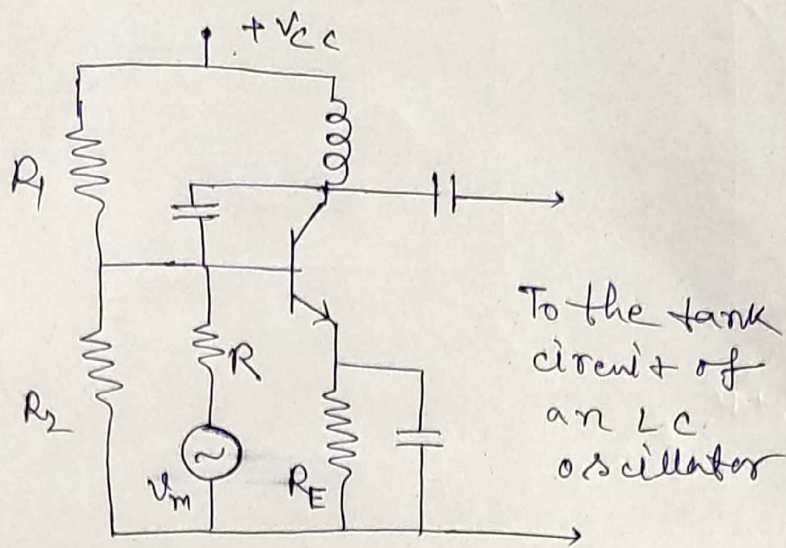 + Vcc
R1
R
R2
Vm
RE
To the tank
circuit of
an LC
oscillator